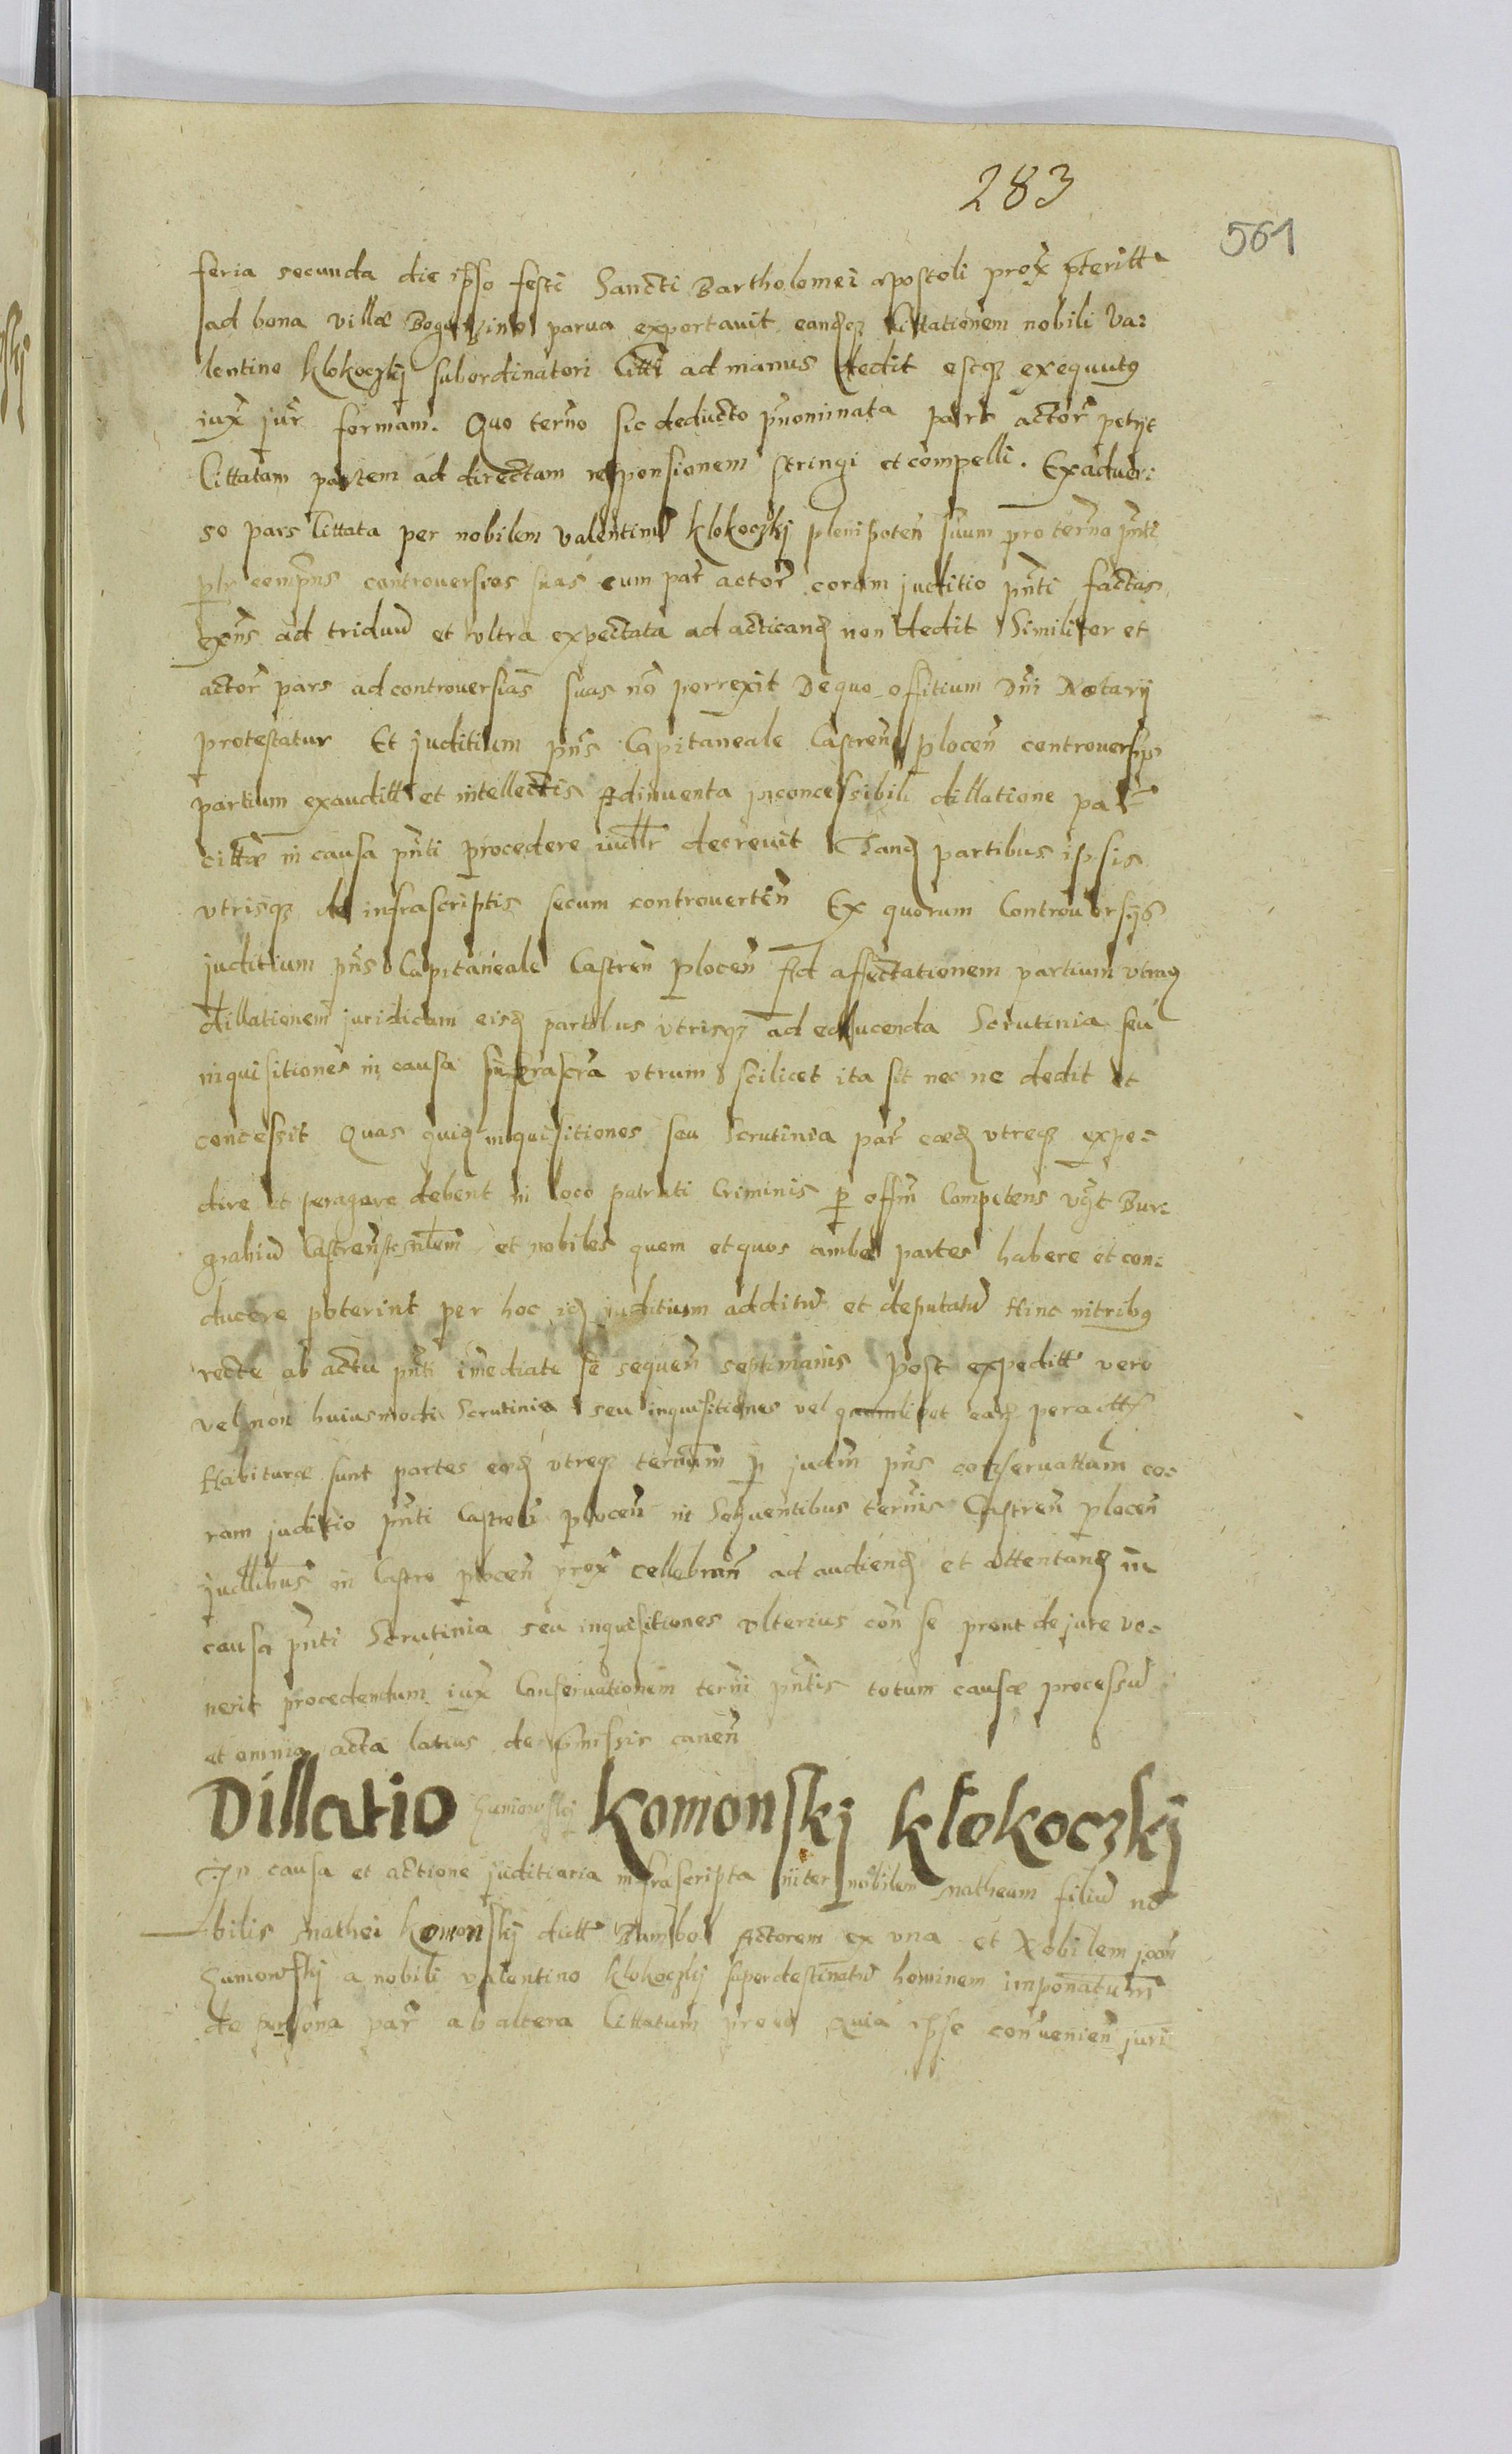 283
561
feria secunda die ipso festi Sancti Bartholomei apostoli prox pteritt
ad bona villæ parua exportauit eandqz Cittationem nobili Va:
lentino klokoczkj subordinatori Citti ad manus dedit estqz exequutg
iux jur formam. Quo terno sic deducto pnominata pars actor petijt
Cittatam partem ad directam responsionem stringi et compelli. Ex aduer:
so pars Cittata per nobilem Valentinu klokoczkj plenipoten suum pro terno pnti
controuersias suas cum par actor coram juditio pnti factas
ad triduu et vltra expectata ad acticand non dedit Similiter et
actor pars ad controuersias suas no porrexit De quo offitium Dni Notarij
protestatur Et juditium pns Capitaneale Castren plocen controuersijs
partium exauditt et intellectis Adinuenta inconcessibili dillatione par
cittæ in causa pnti procedere decreuit Tand partibus ipsis
vtrisqz de infrascriptis secum controuerten Ex quorum Controuersijs
juditium pns Capitaneale Castren plocen Ad affectationem partium
dillationem juridicam eisd partibus vtrisqz ad educenda Scrutinia seu
inquisitiones in causa infrascra vtrum scilicet ita sit nec ne dedit et
concessit Quas quid inquisitiones seu Scrutinia par eæd vtreqz expe=
dire et peragere debent in loco patrati Criminis p offm Competens Bur=
grabiu et nobiles quem et quos ambæ partes habere et con=
ducere poterint per hoc id juditium additu et deputatu Hinc in tribg
recte ab actu pnti imediate se sequen septimanis Post expeditt vero
vel non huiusmodi Scrutinia seu inquisitiones vel peractt
Habituræ sunt partes eæd vtreqz p judm pns conseruattum co=
ram juditio pnti Castren plocen in Sequentibus ternis Castren plocen
judllibus in Castro plocen prox cellebran ad audiend et attentand in
causa pnti Scrutinia seu inquisitiones vlterius con se prout de jure ve=
nerit procedendum iux Conseruationem terni pntis totum causæ processu
et omnia acta latius de pmissis canen
Dillatio komonskj klokoczkj
In causa et actione juditiaria infrascripta inter nobilem Matheum filiu no
bilis Mathei komonskj dictt Actorem ex vna et Nobilem
a nobili Valentino klokoczkj superdestinatu hominem imponatum
de persona par ab altera Cittatum Quia ipse conuenien juri